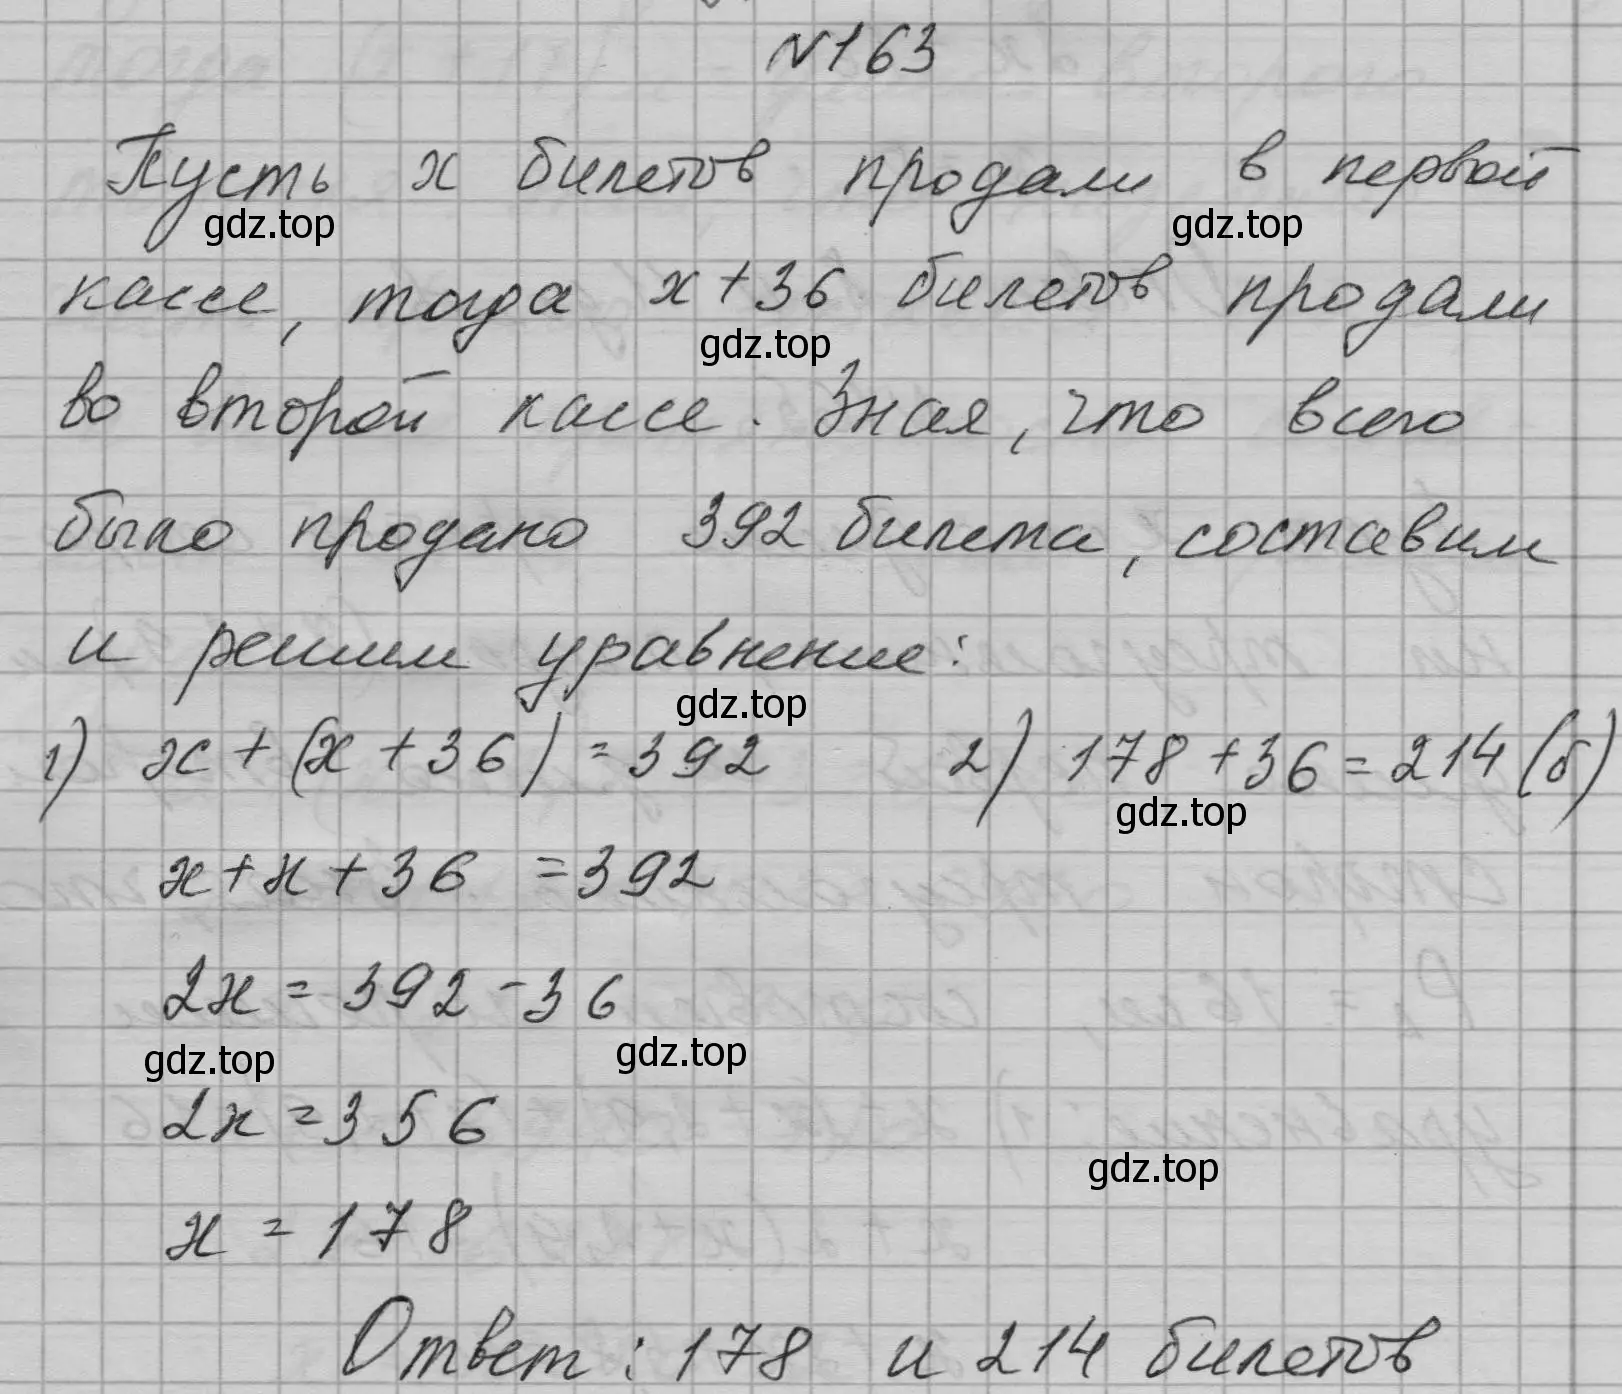 №163
Пусть x билетов продали в первой
gdz.top gdz.top
кассе, тогда x+36 билетов продали
gdz.top
во второй кассе. Зная, что всего
было продано 392 билета, составим
и решим уравнение:
gdz.top
1) x+(x+36)=392 2) 178+36=214(б)
gdz.top
x+x+36=392
2x=392-36
gdz.top gdz.top
2x=356
gdz.top
x=178
Ответ: 178 и 214 билетов